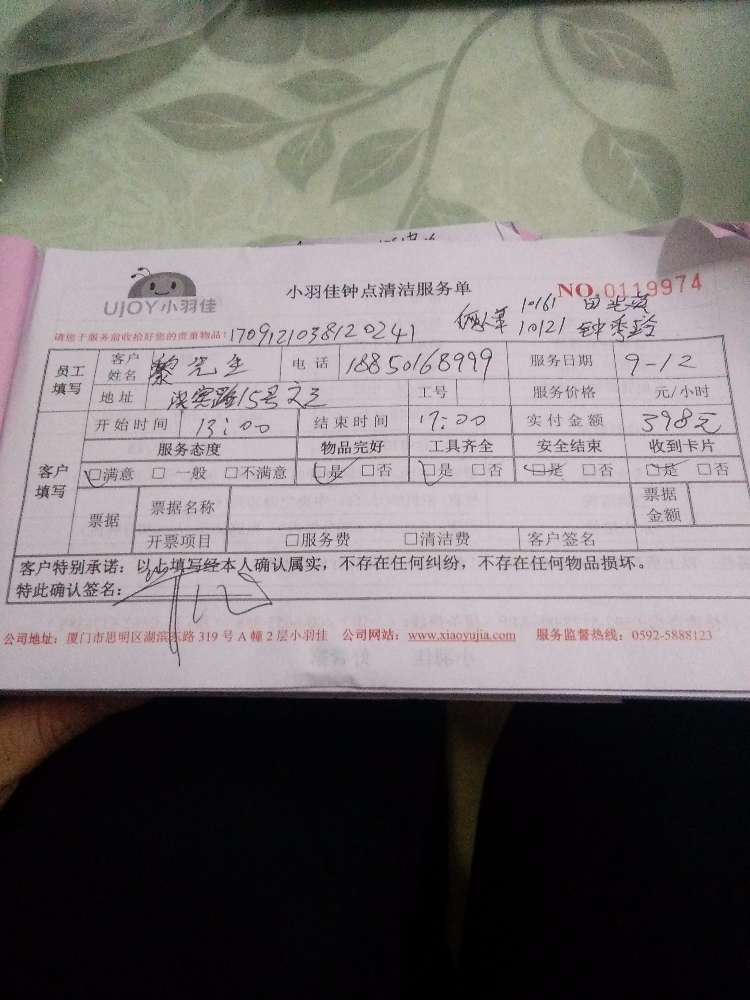 UJOY小羽佳
小羽佳钟点清洁服务单
NO.0119974
请您于服务前收拾好您的贵重物品! 1709121038120241
10161 田
10121 钟秀玲
员工填写 客户姓名 黎先生 电话 18850168999 服务日期 9-12
地址 15号之三 工号 服务价格 元/小时
客户填写 开始时间 13:00 结束时间 17:00 实付金额 398元
服务态度 物品完好 工具齐全 安全结束 收到卡片
☑满意 □一般 □不满意 ☑是 □否 ☑是 □否 ☑是 □否 ☑是 □否
票据 票据名称 票据金额
开票项目 □服务费 □清洁费 客户签名
客户特别承诺:以上填写经本人确认属实,不存在任何纠纷,不存在任何物品损坏。
特此确认签名:
公司地址:厦门市思明区湖滨东路 319 号 A 幢 2 层小羽佳 公司网站:www.xiaoyujia.com 服务监督热线:0592-5888123